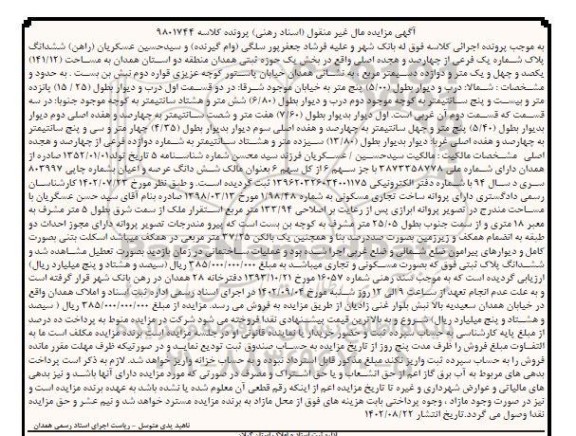 آگهی مزایده مال غیر منقول (اسناد رهنی) پرونده کلاسه ۹۸۰۱۷۴۴
به موجب پرونده اجرائی کلاسه فوق له بانک شهر و علیه فرشاد جعفرپور سلگی (وام گیرنده) و سیدحسین عسکریان (راهن) ششدانگ
پلاک شماره یک فرعی از چهارصد و هجده اصلی واقع در بخش یک حوزه ثبتی همدان منطقه دو استان همدان به مساحت (۱۴۱/۱۲)
یکصد و چهل و یک متر و دوازده دسیمتر مربع به نشانی همدان خیابان پاستور کوچه عزیزی قواره دوم نبش بن بست . به حدود و
مشخصات : شمالا: درب و دیوار بطول (۵/۰۰) پنج متر به خیابان موجود شرقا: در دو قسمت اول درب و دیوار بطول (۲۵ / ۱۵) پانزده
متر و بیست و پنج سانتیمتر به کوچه موجود دوم درب و دیوار بطول (۶/۸۰) شش متر و هشتاد سانتیمتر به کوچه موجود جنوبا: در سه
قسمت که قسمت دوم آن غربی است. اول دیوار بدیوار بطول (۷/۶۰) هفت متر و شصت سانتیمتر به چهارصد و هفده اصلی دوم دیوار
بدیوار بطول (۵/۴۰) پنج متر و چهل سانتیمتر به چهارصد و هفده اصلی سوم دیوار بدیوار بطول (۴/۳۵) چهار متر و سی و پنج سانتیمتر
به چهارصد و هفده اصلی غربا: دیوار بدیوار بطول (۱۳/۸۰) سیزده متر و هشتاد سانتیمتر به شماره دوازده فرعی از چهارصد و هجده
اصلی مشخصات مالکیت : مالکیت سیدحسین / عسکریان فرزند سید محسن شماره شناسنامه ۵ تاریخ تولد ۱۳۵۲/۰۱/۰۱ صادره از
همدان دارای شماره ملی ۳۸۷۳۳۵۸۷۷۸ با جز سهم ۶ از کل سهم ۶ بعنوان مالک شش دانگ عرصه و اعیان بشماره چاپی ۸۰۳۹۹۷
سری د سال ۹۴ با شماره دفتر الکترونیکی ۱۳۹۶۲۰۳۲۶۰۳۴۰۰۱۱۷۵ ثبت گردیده است. و طبق نظر مورخ ۱۴۰۲/۰۷/۲۳ کارشناسان
رسمی دادگستری دارای پروانه ساخت تجاری مسکونی به شماره ۱/۹۸/۴۸ مورخ ۱۳۹۸/۰۳/۱۳ صادره بنام آقای سید حسن عسگریان با
مساحت مندرج در تصویر پروانه ابرازی پس از رعایت بر اصلاحی ۱۳۳/۹۴ متر مربع استقرار ملک از سمت شرق بطول ۵ متر مشرف به
معبر ۱۸ متری و از سمت جنوب بطول ۲۵/۰۵ متر مشرف به کوچه بن بست است که پیرو مندرجات تصویر پروانه دارای مجوز احداث دو
طبقه به انضمام همکف و زیرزمین بصورت صددرصد بنا و همچنین یک بالکن ۳۷/۲۵ متر مربعی در همکف میباشد اسکلت بتنی بصورت
کامل و دیوارهای پیرامون ضلع شمالی و ضلع غربی اجرا شده بود و عملیات ساختمانی در زمان بازدید بصورت تعطیل مشاهده شد و
ششدانگ پلاک ثبتی فوق که بصورت مسکونی و تجاری میباشد به مبلغ ۳۸۵/۰۰۰/۰۰۰/۰۰۰ ریال (سیصد و هشتاد و پنج میلیارد ریال)
ارزیابی گردیده است که به موجب سند رهنی شماره ۱۴۰۵۷ مورخ ۱۳۹۳/۱۰/۲۱ دفترخانه ۲۸ همدان در رهن بانک شهر قرار گرفته است
و به علت عدم انجام تعهد از ساعت ۹ الی ۱۲ روز شنبه مورخ ۱۴۰۲/۰۹/۰۴ در اجرای اسناد رسمی اداره ثبت اسناد و املاک همدان واقع
در خیابان همدان سعیدیه بالا نبش بلوار علی زادیان از طریق مزایده به فروش می رسد. مزایده از مبلغ ۳۸۵/۰۰۰/۰۰۰/۰۰۰ ریال ( سیصد
و هشتاد و پنج میلیارد ریال) شروع و به بالاترین قیمت پیشنهادی نقدا فروخته می شود شرکت در مزایده منوط به پرداخت ده درصد
از مبلغ پایه کارشناسی به حساب سپرده ثبت و حضور خریدار یا نماینده قانونی او در جلسه مزایده است. برنده مزایده مکلف است ما به
التفاوت مبلغ فروش را ظرف مدت پنج روز از تاریخ مزایده به حساب صندوق ثبت تودیع نمایند و در صورتیکه ظرف مهلت مقرر مانده
فروش را به حساب سپرده ثبت واریز نکند مبلغ مذکور قابل استرداد نبوده و به حساب خزانه واریز خواهد شد. لازم به ذکر است پرداخت
بدهی های مربوط به آب برق گاز اعم از حق انشعاب و یا حق اشتراک و مصرف در صورتی که مورد مزایده دارای آنها باشد و نیز بدهی
های مالیاتی و عوارض شهرداری و غیره تا تاریخ مزایده اعم از اینکه رقم قطعی آن معلوم شده یا نشده باشد به عهده برنده مزایده است و
نیز در صورت وجود مازاد ، وجوه پرداختی بابت هزینه های فوق از محل مازاد به برنده مزایده مسترد خواهد شد و نیم عشر و حق مزایده
نقدا وصول می گردد.تاریخ انتشار ۱۴۰۲/۰۸/۲۲
ناهید یدی متوسل - ریاست اجرای اسناد رسمی همدان